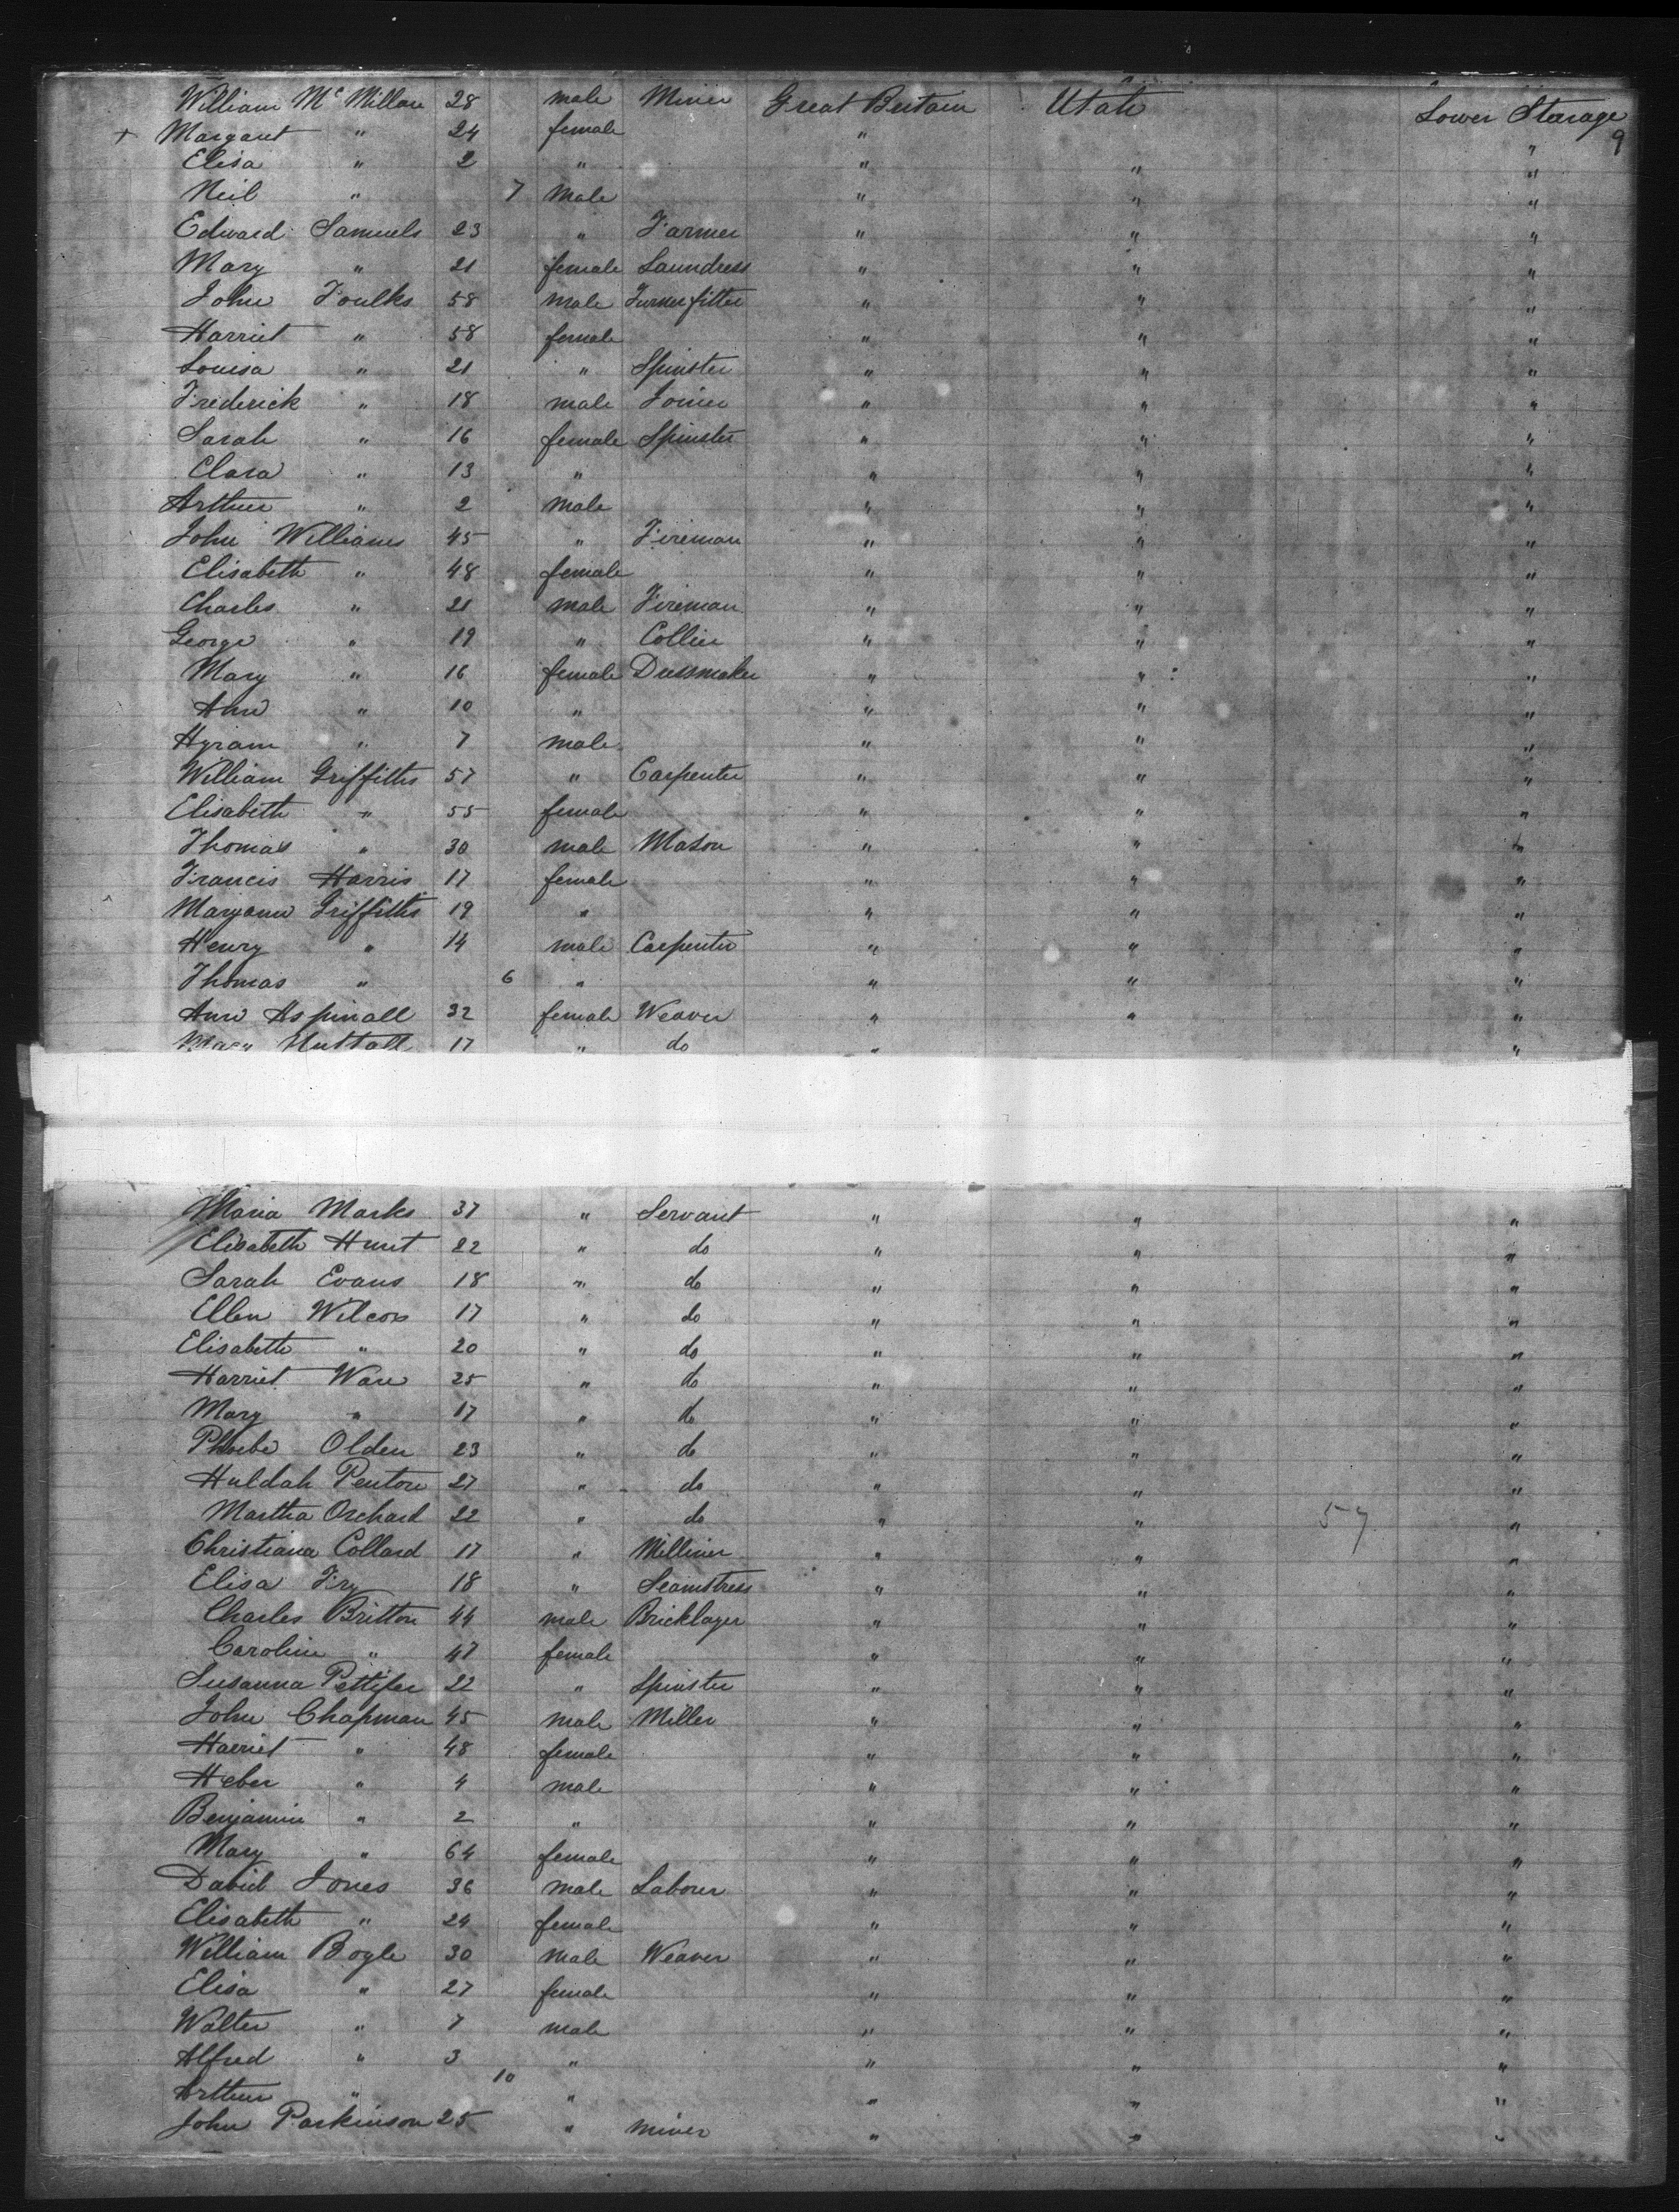 William McMillan 28 male Miner Great Britain Utah Lower Stearage
9
+ Margaret " 24 female " "
Elisa " 2 " " " "
Neil " 7 Male " " "
Edward Samuels 23 " Farmer " " "
Mary " 21 female Laundress " " "
John Foulks 58 male Turner fitter " " "
Harriet " 58 female " " "
Louisa " 21 " Spinster " " "
Frederick " 18 male Joiner " " "
Sarah " 16 female Spinster " " "
Clara " 13 " " " "
Arthur " 2 male " " "
John Williams 45 " Fireman " " "
Elisabeth " 48 female " " "
Charles " 21 male Fireman " " "
George " 19 " Collier " " "
Mary " 16 female Dressmaker " " "
Ann " 10 " " " "
Hyram " 7 male " " "
William Griffiths 57 " Carpenter " " "
Elisabeth " 55 female " " "
Thomas " 30 male Mason " " "
Francis Harris 17 female " " "
Maryann Griffiths 19 " " " "
Henry " 14 male Carpenter " " "
Thomas " 6 " " " "
Ann Aspinall 32 female Weaver " " "
Mary Nuttall 17 " do " "
Maria Marks 37 " Servant " " "
Elisabeth Hunt 22 " do " " "
Sarah Evans 18 " do " " "
Ellen Wilcox 17 " do " " "
Elisabeth " 20 " do " " "
Harriet Ware 25 " do " " "
Mary " 17 " do " " "
Phoebe Olden 23 " do " " "
Huldah Penton 27 " do " " "
Martha Orchard 22 " do " " 57 "
Christiana Collard 17 " Milliner " " "
Elisa Fry 18 " Seamstress " " "
Charles Britton 44 male Bricklayer " " "
Caroline " 47 female " " "
Susanna Pettifer 22 " Spinster " " "
John Chapman 45 male Miller " " "
Harriet " 48 female " " "
Heber " 4 male " " "
Benjamin " 2 " " " "
Mary " 64 female " " "
David Jones 36 male Labourer " " "
Elisabeth " 24 female " " "
William Bogle 30 male Weaver " " "
Elisa " 27 female " " "
Walter " 7 male " " "
Alfred " 3 " " " "
Arthur " 10 " " " "
John Parkinson 25 " miner " " "